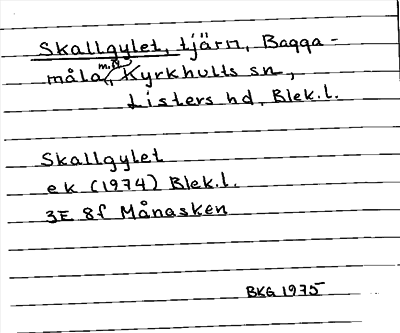 Skallgylet, tjärn, Bagga-
måla, m.fl. Kyrkhults sn,
Listers hd, Blek.l.
Skallgylet
ek (1974) Blek.l.
3E 8f Månasken
BKG 1975